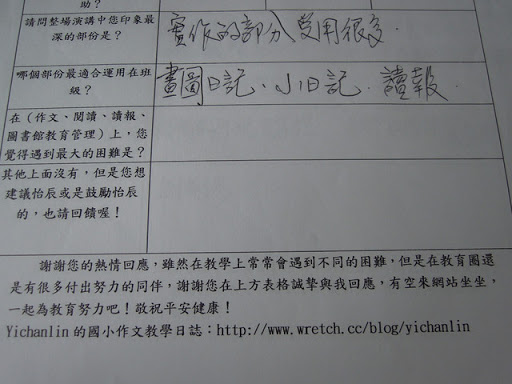 助？
請問整場演講中您印象最
深的部份是？
實作的部分受用很多.
哪個部份最適合運用在班
級？
畫圖日記、小日記.讀報.
在（作文、閱讀、讀報、
圖書館教育管理）上，您
覺得遇到最大的困難是？
其他上面沒有，但是您想
建議怡辰或是鼓勵怡辰
的，也請回饋喔！
謝謝您的熱情回應，雖然在教學上常常會遇到不同的困難，但是在教育圈還
是有很多付出努力的同伴，謝謝您在上方表格誠摯與我回應，有空來網站坐坐，
一起為教育努力吧！敬祝平安健康！
Yichanlin 的國小作文教學日誌：http://www.wretch.cc/blog/yichanlin